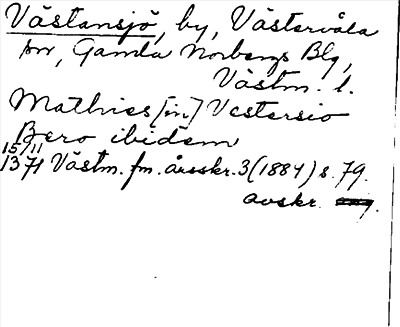 Västansjö, by, Västervåla
sn, Gamla Norbergs Blg,
Västm. l.
Mathies [in] Vestersio
Bero ibidem
15/11
1371 Västm. fm. årsskr. 3 (1884) s. 79.
avskr.